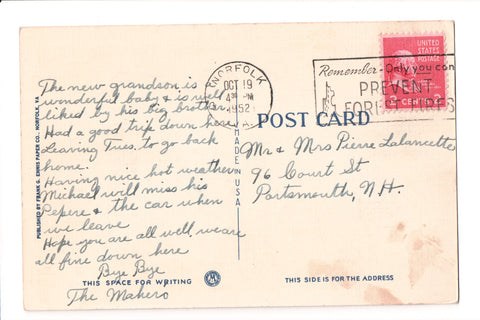 The new grandson is
wonderful baby & is well
liked by his big brother
Had a good trip down here
Leaving Tues. to go back
home.
Having nice hot weather
Michael will miss his
Pepere & the car when
we leave
Hope you are all well. we are
all fine down here
Bye Bye
The Mahers
THIS SPACE FOR WRITING
PUBLISHED BY FRANK G. ENNIS PAPER CO., NORFOLK, VA.
MADE IN U.S.A.
NORFOLK
OCT 19
4 PM
1952
VA.
Remember - Only you can
PREVENT
FOREST FIRES
UNITED
STATES
POSTAGE
2 CENTS 2
POST CARD
Mr & Mrs Pierre Lalancette
96 Court St
Portsmouth, N.H.
THIS SIDE IS FOR THE ADDRESS